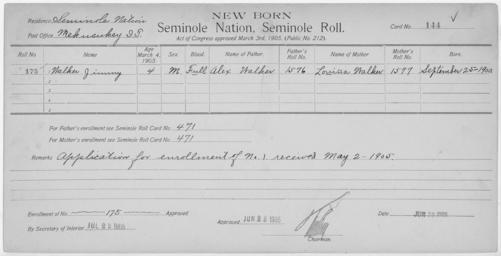 NEW BORN
Residence: Seminole Nation
Seminole Nation, Seminole Roll.
Card No. 144 ✓
Post Office Mekusukey I.T.
Act of Congress approved March 3rd, 1905, (Public No. 212).
Roll No. Name Age March 4, 1905 Sex. Blood. Name of Father. Father's Roll No. Name of Mother Mother's Roll No. Born.
175 Walker Jimmy 4 M. Full Alex Walker 1576 Louisa Walker 1577 September 25-1900
2
3
4
5
For Father's enrollment see Seminole Roll Card No. 471
For Mother's enrollment see Seminole Roll Card No. 471
Remarks Application for enrollment of No. 1 received May 2-1905.
Enrollment of No. 175 Approved
By Secretary of Interior JUL 22 1905
Approved JUN 1905
Chairman.
Date JUN 1905